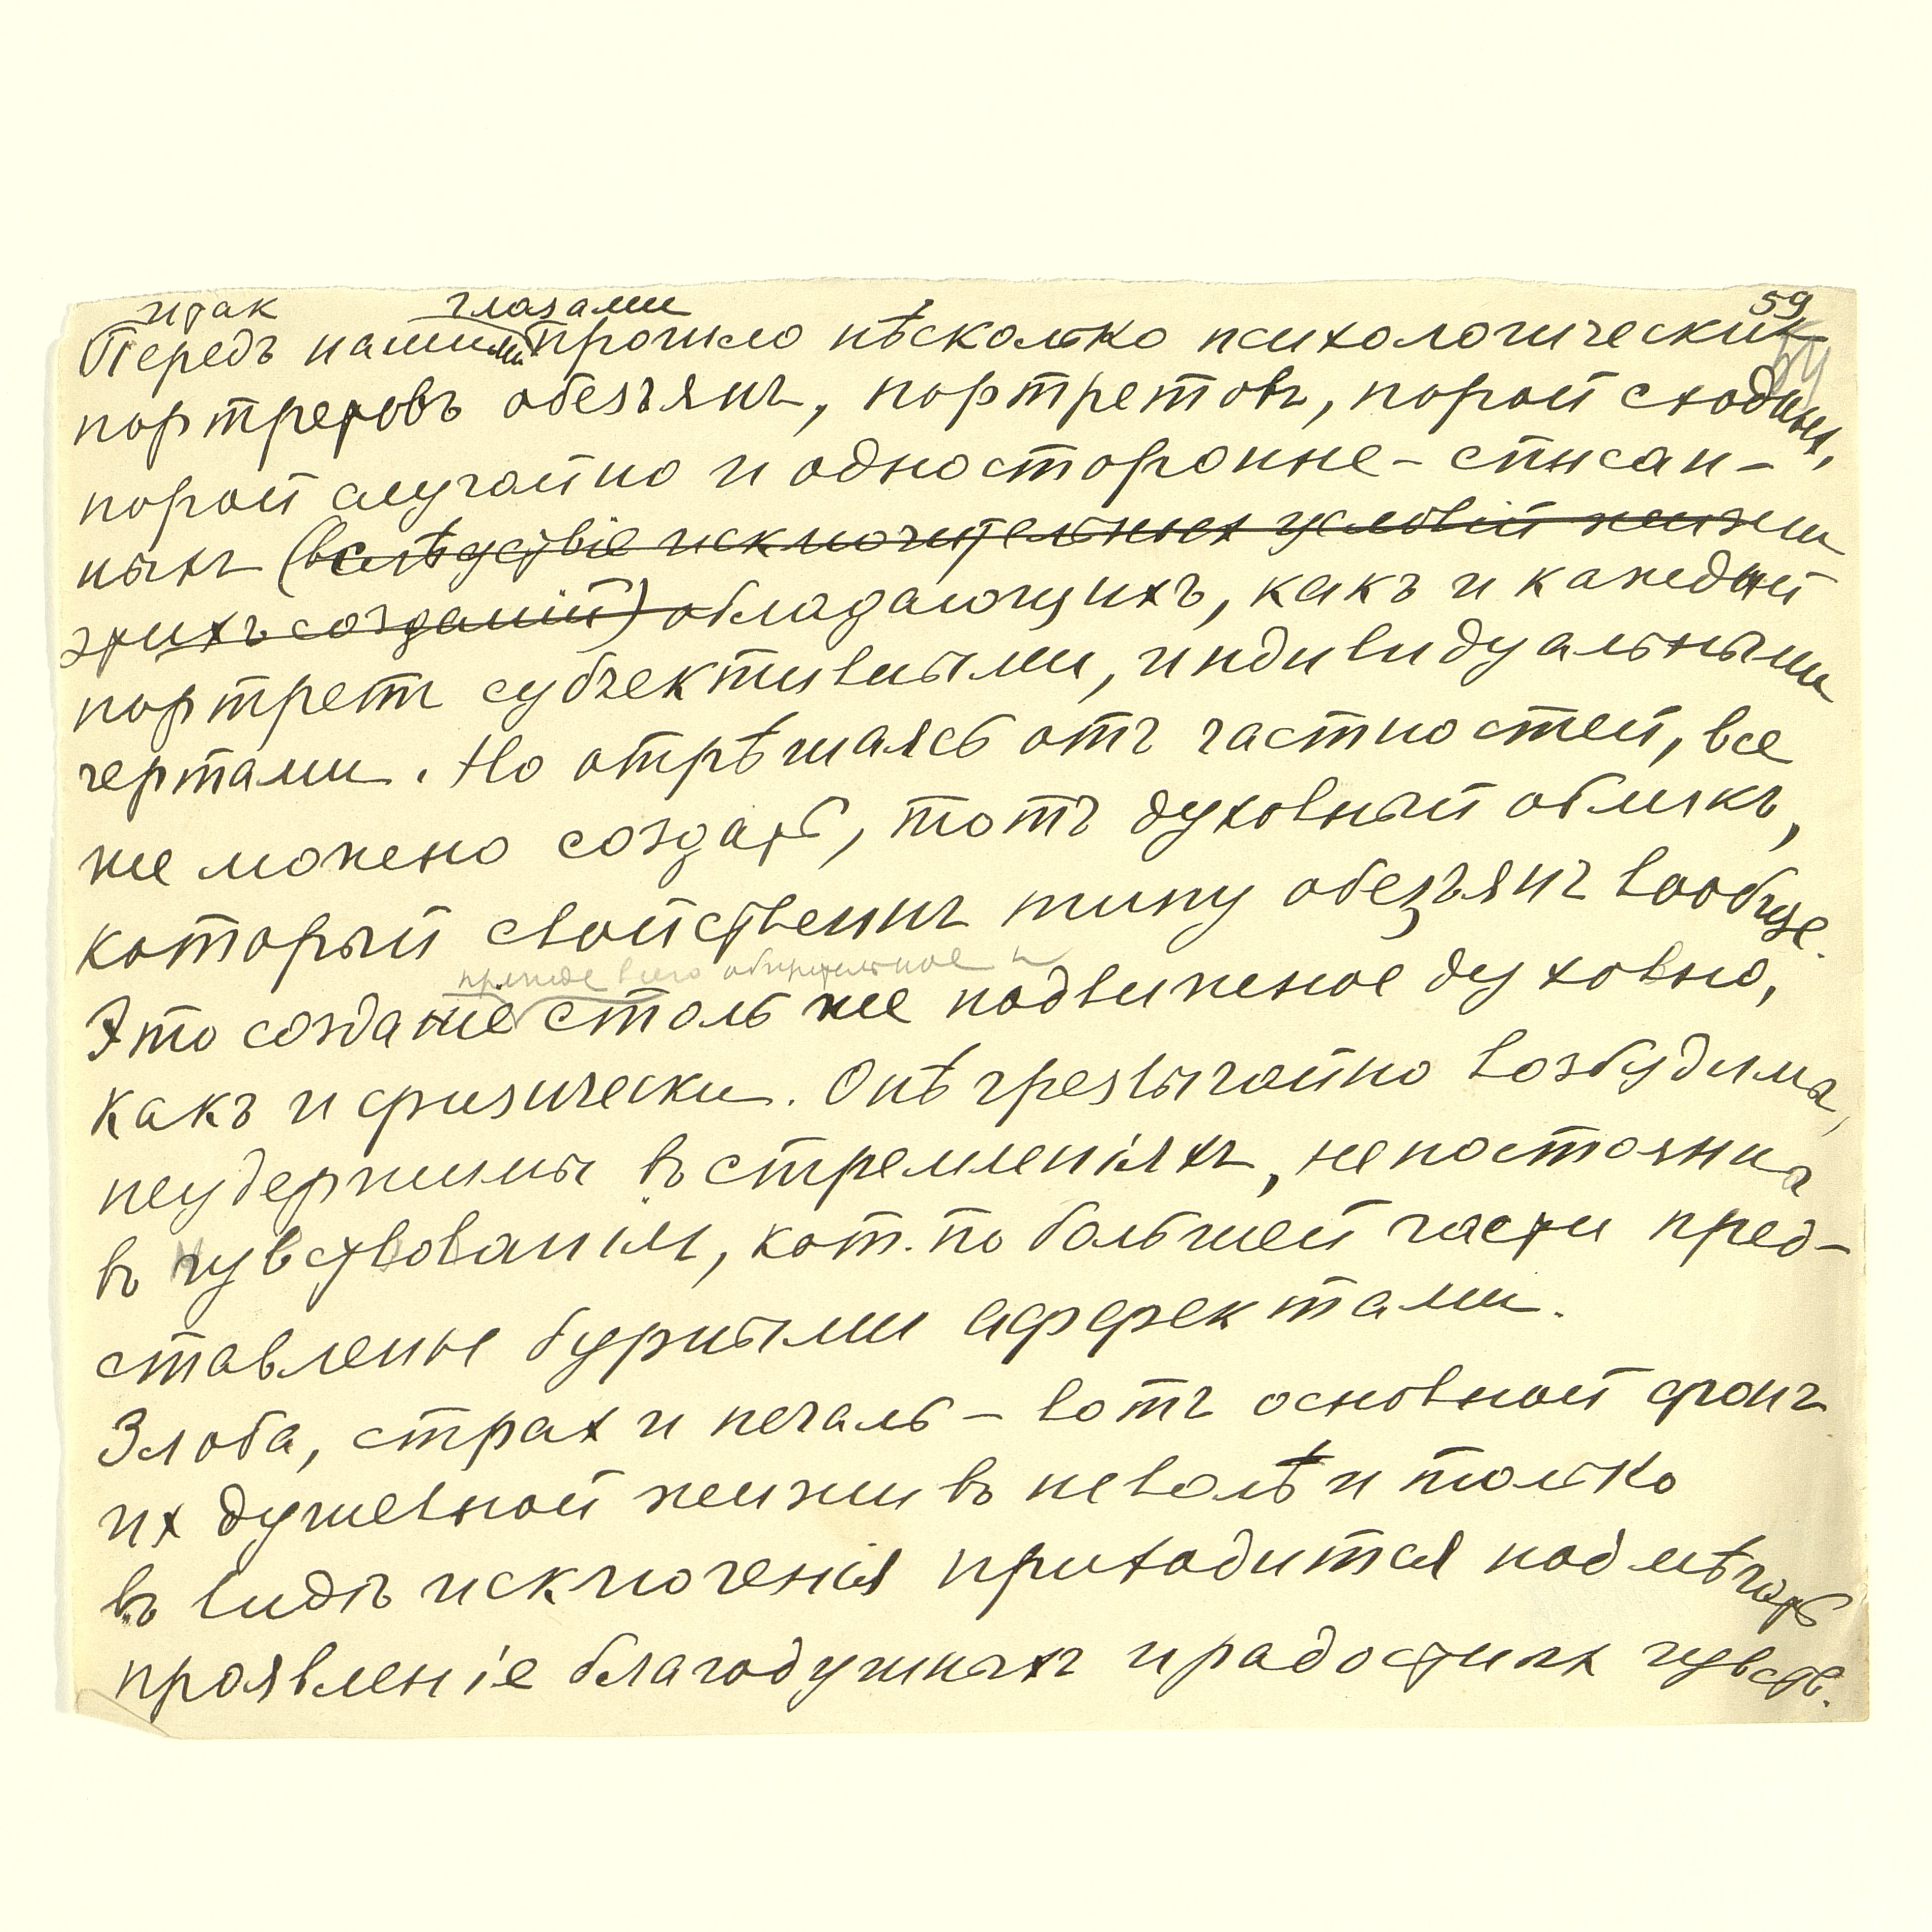 итак глазами 59
Передъ нашими прошло нѣсколько психологических
портретовъ обезъянъ, портретовъ, порой сходных,
порой случайно и односторонне-списан-
ныхъ (вслѣдствіе исключительных условій жизни
этихъ созданій) обладающихъ, какъ и каждый
портретъ субъективными, индивидуальными
чертами. Но отрѣшаясь отъ частностей, все
же можно создать, тотъ духовный обликъ,
который свойственнъ типу обезъянъ вообще.
прежде всего общительное и
Это созданіе столь же подвижное духовно,
какъ и физически. Онѣ чрезвычайно возбудимы,
неудержимы въ стремленіяхъ, непостоянны
въ чувствованіях, кот. по большей части пред-
ставлены бурными аффектами.
Злоба, страх и печаль – вотъ основной фонъ
их душевной жизни въ неволѣ и только
въ видѣ исключенія приходится подмѣчать
проявленіе благодушныхъ и радостных чувств.